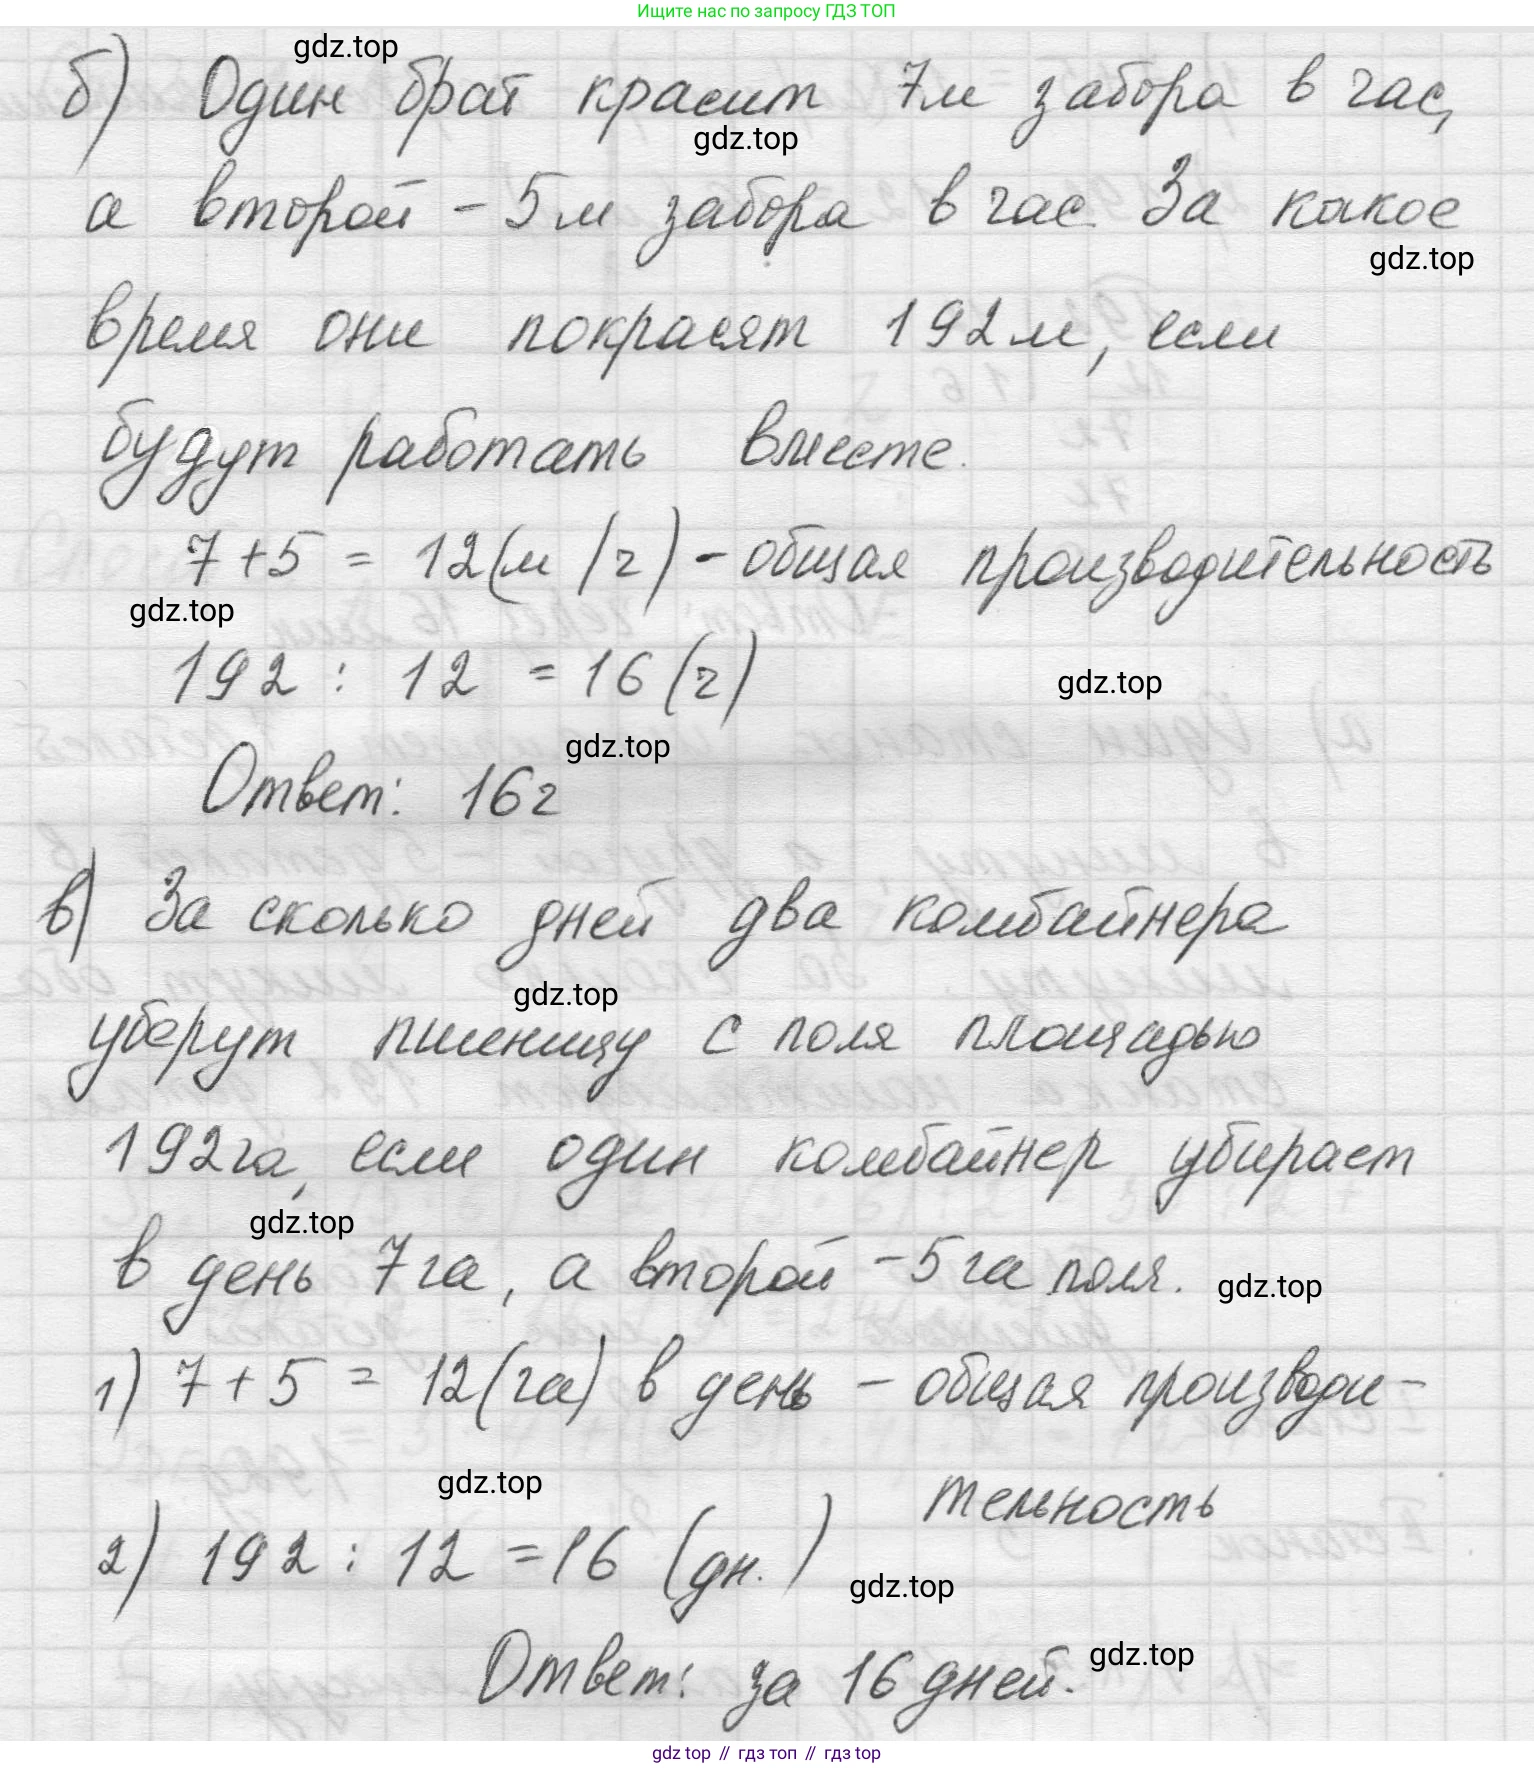 Ищите нас по запросу ГДЗ ТОП
gdz.top
б) Один брат красит 7м забора в час,
gdz.top
а второй - 5м забора в час. За какое
gdz.top
время они покрасят 192м, если
будут работать вместе.
7+5 = 12(м/ч) - общая производительность
gdz.top
192 : 12 = 16 (ч)
gdz.top
gdz.top
Ответ: 16ч
в) За сколько дней два комбайнера
gdz.top
уберут пшеницу с поля площадью
192га, если один комбайнер убирает
gdz.top
в день 7га, а второй -5га поля.
gdz.top
1) 7+5 = 12(га) в день - общая производи-
gdz.top
тельность
2) 192 : 12 =16 (дн.)
gdz.top
Ответ: за 16 дней.
gdz.top
gdz top // гдз топ // гдз top